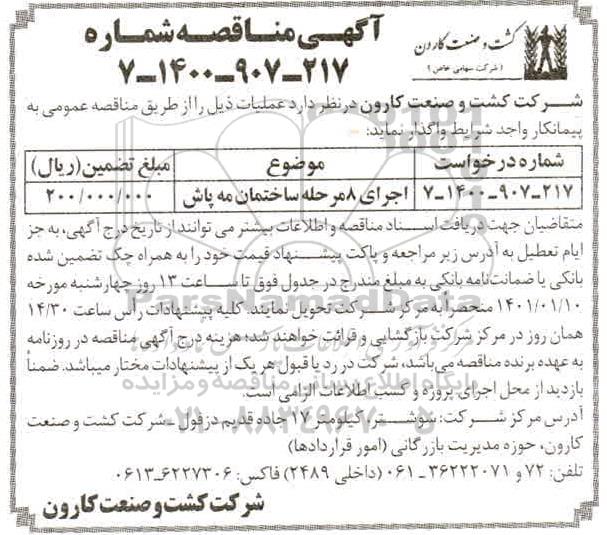 کشت و صنعت کارون
(شرکت سهامی خاص)
آگهی مناقصه شماره
۷-۱۴۰۰-۹۰۷-۲۱۷
شرکت کشت و صنعت کارون در نظر دارد عملیات ذیل را از طریق مناقصه عمومی به
پیمانکار واجد شرایط واگذار نماید:
شماره درخواست موضوع مبلغ تضمین(ریال)
۷-۱۴۰۰-۹۰۷-۲۱۷ اجرای ۸مرحله ساختمان مه پاش ۲۰۰/۰۰۰/۰۰۰
متقاضیان جهت دریافت اسناد مناقصه و اطلاعات بیشتر می توانند از تاریخ درج آگهی، به جز
ایام تعطیل به آدرس زیر مراجعه و پاکت پیشنهاد قیمت خود را به همراه چک تضمین شده
بانکی یا ضمانت‌نامه بانکی به مبلغ مندرج در جدول فوق تا ساعت ۱۳ روز چهارشنبه مورخه
۱۴۰۱/۰۱/۱۰ منحصراً به مرکز شرکت تحویل نمایند. کلیه پیشنهادات رأس ساعت ۱۴/۳۰
همان روز در مرکز شرکت بازگشایی و قرائت خواهند شد؛ هزینه درج آگهی مناقصه در روزنامه
به عهده برنده مناقصه می‌باشد، شرکت در رد یا قبول هر یک از پیشنهادات مختار میباشد. ضمناً
بازدید از محل اجرای پروژه و کسب اطلاعات الزامی است.
آدرس مرکز شرکت: شوشتر، کیلومتر ۱۷ جاده قدیم دزفول -شرکت کشت و صنعت
کارون، حوزه مدیریت بازرگانی (امور قراردادها)
تلفن: ۷۲ و ۳۶۲۲۲۰۷۱ - ۰۶۱ (داخلی ۲۴۸۹) فاکس: ۰۶۱۳-۶۲۲۷۳۰۶
شرکت کشت و صنعت کارون
ParsNamadData
پایگاه اطلاع رسانی مناقصه و مزایده
۰۲۱-۸۸۳۴۹۶۷۰-۵